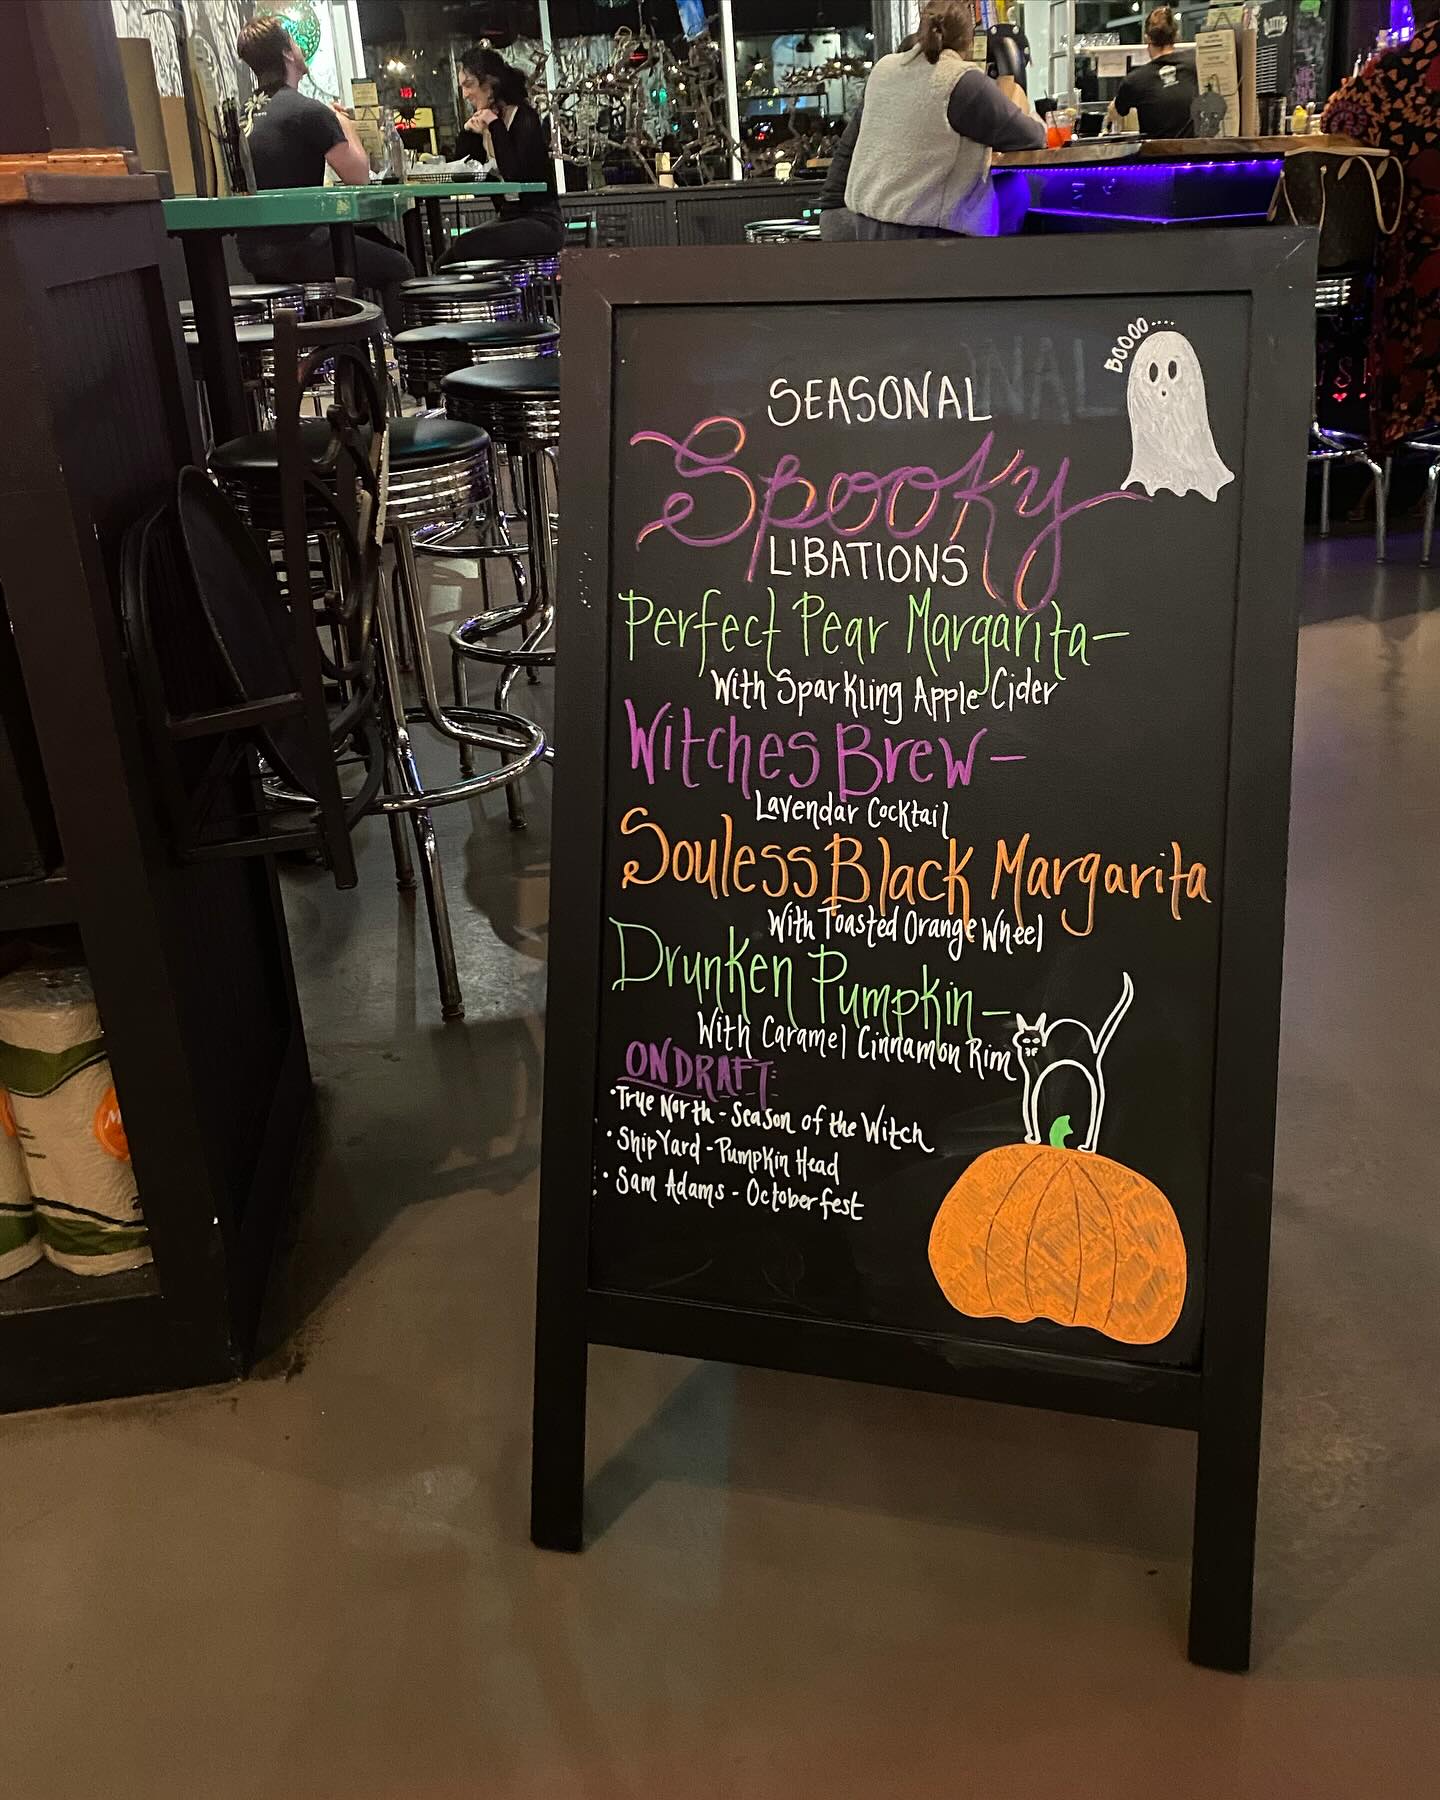 BOOOO....
SEASONAL
Spooky
LIBATIONS
Perfect Pear Margarita-
With Sparkling Apple Cider
Witches Brew-
Lavendar Cocktail
Souless Black Margarita
With Toasted Orange Wheel
Drunken Pumpkin-
With Caramel Cinnamon Rim
ON DRAFT
•True North - Season of the Witch
•ShipYard - Pumpkin Head
•Sam Adams - Octoberfest